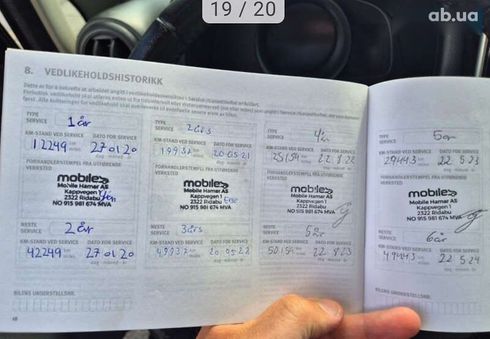 19 / 20
ab.ua
8. VEDLIKEHOLDSHISTORIKK
TYPE SERVICE 1 år
KM-STAND VED SERVICE DATO FOR SERVICE
12249 27 01 20
FORHANDLERSTEMPEL FRA UTFØRENDE VERKSTED
mobile
Mobile Hamar AS
Kappvegen 1
2322 Ridabu
NO 915 981 674 MVA
NESTE SERVICE 2 år
KM-STAND VED SERVICE DATO FOR SERVICE
42249 27 01 20
TYPE SERVICE 2 års
KM-STAND VED SERVICE DATO FOR SERVICE
19937 20 05 21
FORHANDLERSTEMPEL FRA UTFØRENDE VERKSTED
mobile
Mobile Hamar AS
Kappvegen 1
2322 Ridabu
NO 915 981 674 MVA
NESTE SERVICE 3 års
KM-STAND VED SERVICE DATO FOR SERVICE
49937 20 05 22
TYPE SERVICE
KM-STAND VED SERVICE DATO FOR SERVICE
25154 22 8 22
FORHANDLERSTEMPEL FRA UTFØRENDE VERKSTED
mobile
Mobile Hamar AS
Kappvegen 1
2322 Ridabu
NO 915 981 674 MVA
NESTE SERVICE
KM-STAND VED SERVICE DATO FOR SERVICE
50154 22 8 23
TYPE SERVICE
KM-STAND VED SERVICE DATO FOR SERVICE
29443 22 5 23
FORHANDLERSTEMPEL FRA UTFØRENDE VERKSTED
mobile
Mobile Hamar AS
Kappvegen 1
2322 Ridabu
NO 915 981 674 MVA
NESTE SERVICE 6 år
KM-STAND VED SERVICE DATO FOR SERVICE
49443 22 5 24